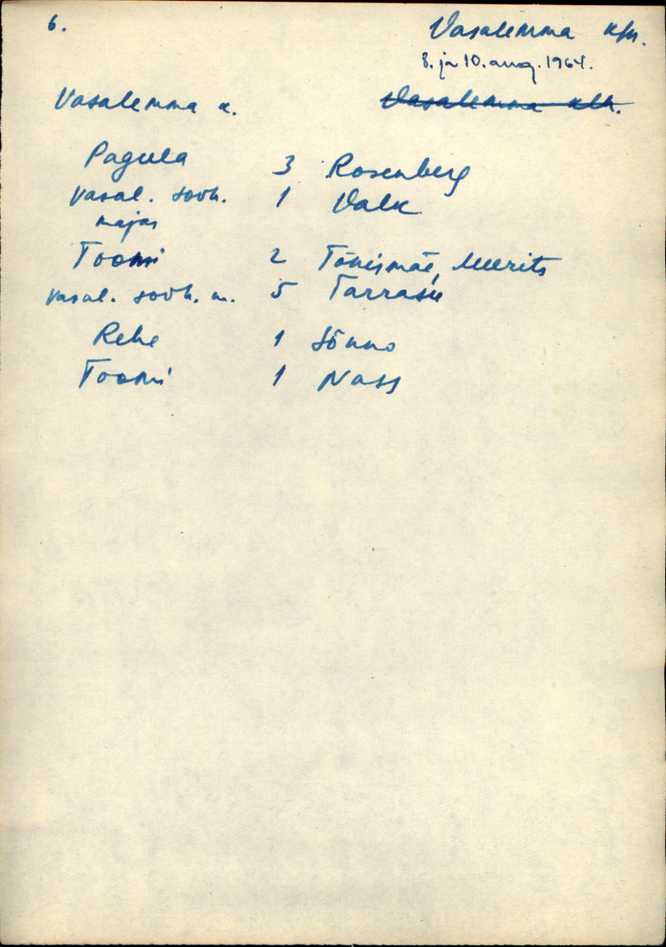 6.
Vasalemma kfn.
8. ja 10. aug. 1964.
Vasalemma k.
Vasalemma
Pagula 3 Rosenberg
Vasal. sovh. 1 Valk
majas
Toomi 2 Tõnismäe, Meerits
Vasal. sovh. m. 5
Rehe 1 Sõnno
Toomi 1 Nass